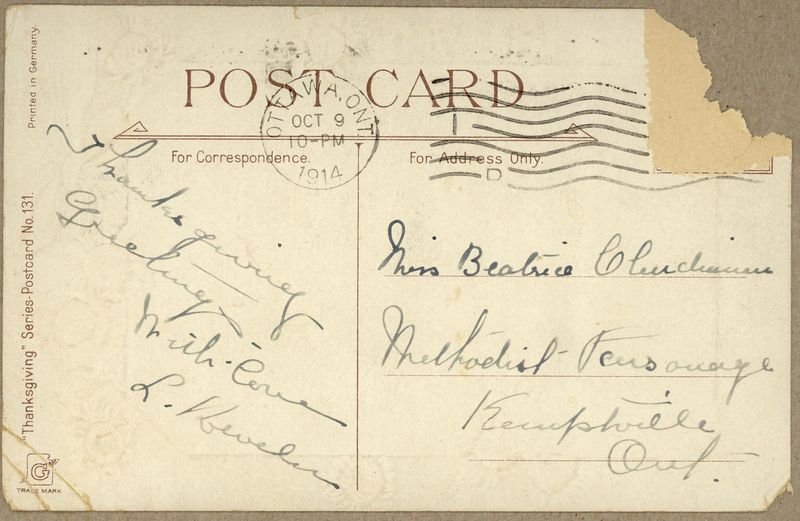 POST CARD
OTTAWA, ONT
OCT 9
10-PM
1914
D
For Correspondence.
For Address Only.
Thanksgiving
Greetings
With Love
L.
Miss Beatrice
Methodist Parsonage
Kemptville
Ont.
Printed in Germany.
"Thanksgiving" Series-Postcard No. 131.
G
TRADE MARK